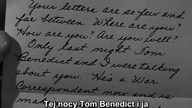 Your letters are so few and
far between. Where are you?
How are you? Are you well?
Only last night Tom
Benedict and I were talking
about you. He's a War
Correspondent now and is
Tej nocy Tom Benedict i ja